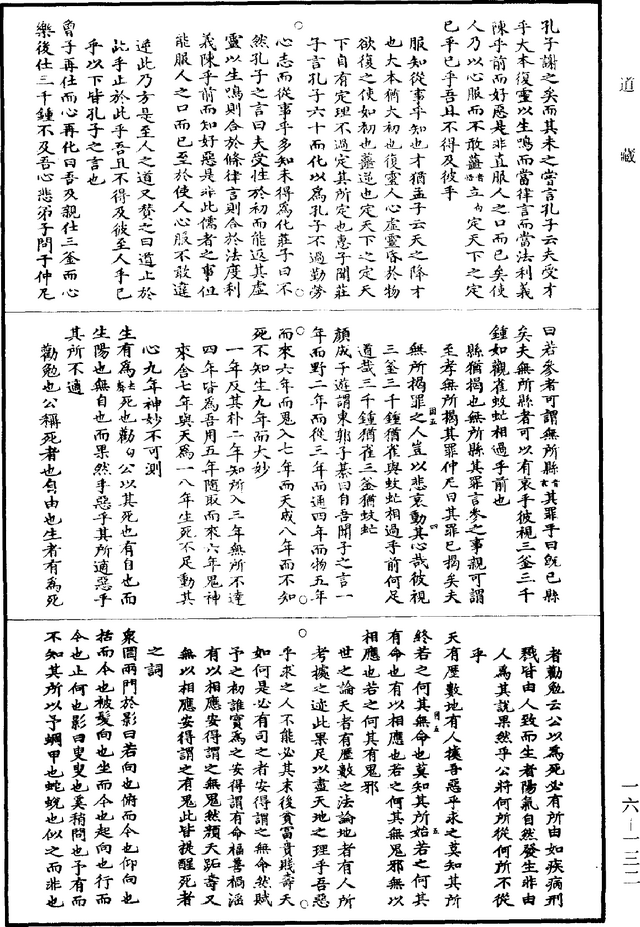 道藏
孔子謝之矣而其未之嘗言孔子云夫受才
乎大本復靈以生鳴而當律言而當法利義
陳乎前而好惡是非直服人之口而已矣使
人乃以心服而不敢蘁立定天下之定
已乎已乎吾且不得及彼乎
服知從事乎知也才猶孟子云天之降才
也大本猶大初也復靈人心虛靈昏於物
欲復之使如初也蘁逆也定天下之定天
下自有定理不過定其所定也惠子聞莊
子言孔子六十而化以為孔子不過勤勞
心志而從事乎多知未得為化莊子曰不
然孔子之言曰夫受性於初而能返其虛
靈以生鳴則合於條律言則合於法度利
義陳乎前而知好惡是非此儒者之事但
能服人之口而已至於使人心服不敢違
逆此乃方是至人之道又贊之曰道止於
此乎止於此乎吾且不得及彼至人乎已
乎以下皆孔子之言也
曾子再仕而心再化曰吾及親仕三釜而心
樂後仕三千鍾不及吾心悲弟子問于仲尼
曰若參者可謂無所縣其罪乎曰既已縣
矣夫無所縣者可以有哀乎彼視三釜三千
鍾如觀雀蚊虻相過乎前也
縣猶揭也無所縣其罪言參之事親可謂
至孝無所揭其罪仲尼曰其罪已揭矣夫
無所揭罪之人豈以悲哀動其心哉彼視
三釜三千鍾猶雀與蚊虻相過乎前何足
道哉三千鍾猶雀三釜猶蚊虻
顏成子遊謂東郭子綦曰自吾聞子之言一
年而野二年而從三年而通四年而物五年
而來六年而鬼入七年而天成八年而不知
死不知生九年而大妙
一年反其朴二年知所入三年無所不達
四年皆為吾用五年隨取而來六年鬼神
來舍七年與天為一八年生死不足動其
心九年神妙不可測
生有為死也勸公以其死也有自也而
生陽也無自也而果然乎惡乎其所適惡乎
其所不適
勸勉也公稱死者也自由也生者有為死
者勸勉云公以為死必有所由如疾病刑
戮皆由人致而生者陽氣自然發生非由
人為其說果然乎公將何所從何所不從
乎
天有歷數地有人據吾惡乎求之莫知其所
終若之何其無命也莫知其所始若之何其
有命也有以相應也若之何其無鬼邪無以
相應也若之何其有鬼邪
世之論天者有歷數之法論地者有人所
考據之迹此果足以盡天地之理乎吾惡
乎求之人不能必其末後貧富貴賤壽夭
如何是必有司之者安得謂之無命然賦
予之初誰實為之安得謂有命福善禍淫
有以相應安得謂之無鬼然顏夭跖壽又
無以相應安得謂之有鬼此皆提醒死者
之詞
衆罔兩問於影曰若向也俯而今也仰向也
括而今也被髮向也坐而今也起向也行而
今也止何也影曰叟叟也奚稍問也予有而
不知其所以予蜩甲也蛇蛻也似之而非也
一六—一三二